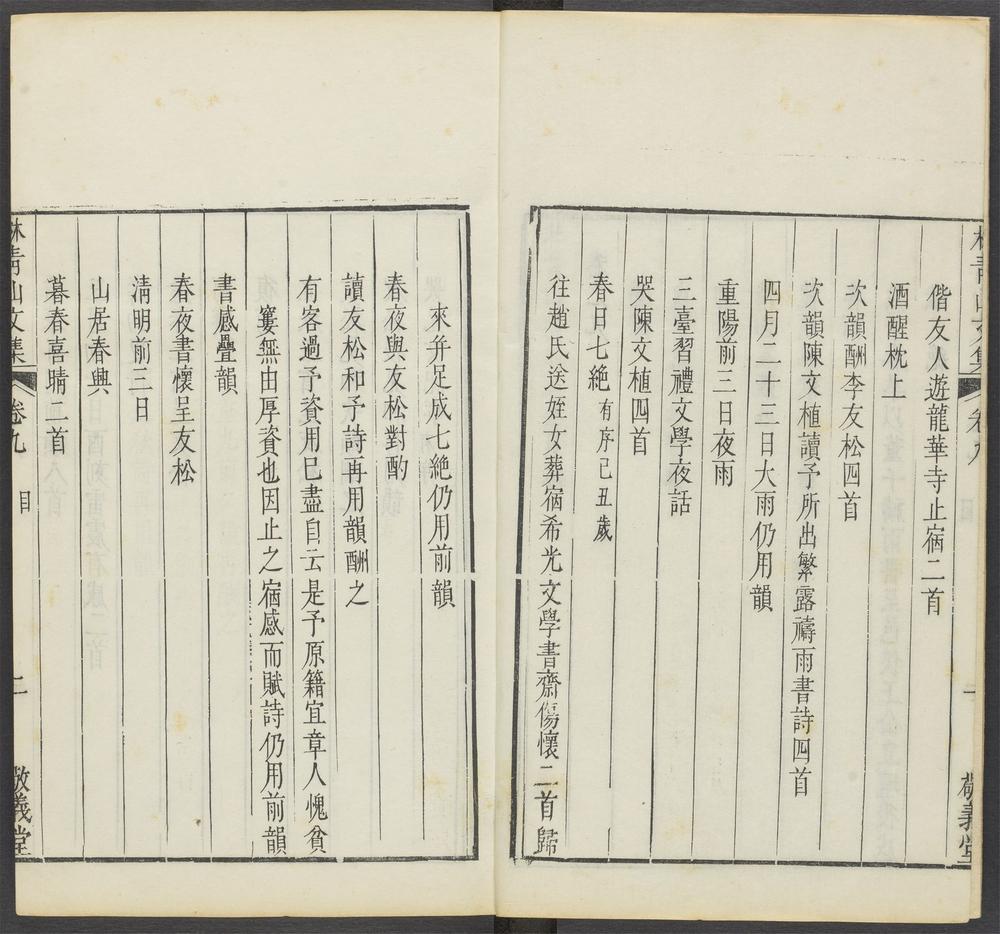 偕友人遊龍華寺止宿二首
酒醒枕上
次韻酬李友松四首
次韻陳文植讀予所出繁露禱雨書詩四首
四月二十三日大雨仍用韻
重陽前三日夜雨
三臺習禮文學夜話
哭陳文植四首
春日七絶有序己丑歲
往趙氏送姪女葬宿希光文學書齋傷懷二首歸
來弁足成七絶仍用前韻
春夜與友松對酌
讀友松和予詩再用韻酬之
有客過予資用已盡自云是予原籍宜章人愧貧
窶無由厚資也因止之宿感而賦詩仍用前韻
書感疊韻
春夜書懷呈友松
清明前三日
山居春興
暮春喜晴二首
林青山文集 卷九 目 二 敬義堂